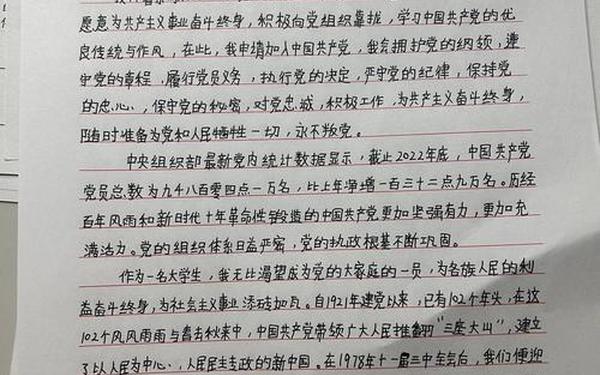 愿意为共产主义事业奋斗终身，积极向党组织靠拢，学习中国共产党的优
良传统与作风，在此，我申请加入中国共产党，我会拥护党的纲领，遵
守党的章程，履行党员义务，执行党的决定，严守党的纪律，保持党
的忠心，保守党的秘密，对党忠诚，积极工作，为共产主义奋斗终身，
随时准备为党和人民牺牲一切，永不叛党。
中央组织部最新党内统计数据显示，截止2022年底，中国共产党
党员总数为九千八百零四点一万名，比上年净增一百三十二点九万名。历经
百年风雨和新时代十年革命性锻造的中国共产党更加坚强有力，更加充
满活力。党的组织体系日益严密，党的执政根基不断巩固。
作为一名大学生，我无比渴望成为党的大家庭的一员，为各族人民的利
益奋斗终身，为社会主义事业添砖加瓦。自1921年建党以来，已有102个年头，在这
102个风风雨雨与春去秋来中，中国共产党带领广大人民推翻"三座大山"，建立
了以人民为中心、人民民主专政的新中国。在1978年十一届三中全会后，我们便迎